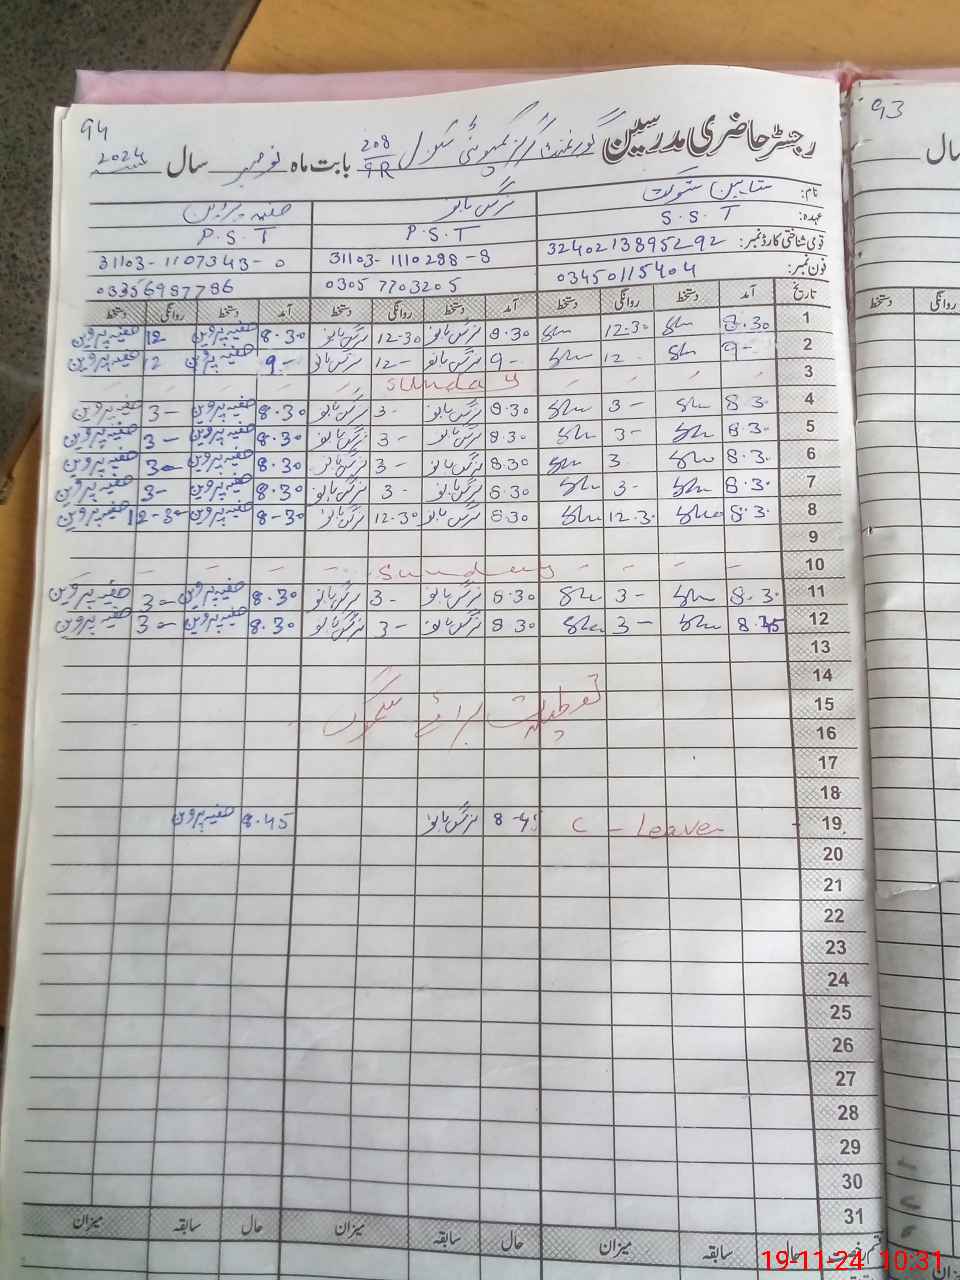 94
93
رجسٹر حاضری مدرسین گورنمنٹ گرلز کمیونٹی سکول 208/9R بابت ماہ نومبر سال 2024
نام: شوکت نرگس بانو صفیہ پروین
عہدہ: S.S.T P.S.T P.S.T
قومی شناختی کارڈ نمبر: 3240213895292 31103-1110288-8 31103-1107343-0
فون نمبر: 03450115404 0305 7703205 03356987786
تاریخ آمد دستخط روانگی دستخط آمد دستخط روانگی دستخط آمد دستخط روانگی دستخط
1 8.30 12.30 8.30 نرگس بانو 12.30 نرگس بانو 8.30 صفیہ پروین 12- صفیہ پروین
2 9- 12 9- نرگس بانو 12- نرگس بانو 9- صفیہ پروین 12 صفیہ پروین
3 - - - - sunday - - - -
4 8.3. 3- 8.30 نرگس بانو 3- نرگس بانو 8.30 صفیہ پروین 3- صفیہ پروین
5 8.3. 3- 8.30 نرگس بانو 3- نرگس بانو 8.30 صفیہ پروین 3- صفیہ پروین
6 8.3. 3 8.30 نرگس بانو 3- نرگس بانو 8.30 صفیہ پروین 3- صفیہ پروین
7 8.3. 3- 8.30 نرگس بانو 3- نرگس بانو 8.30 صفیہ پروین 3- صفیہ پروین
8 8.3. 12.3. 8.30 نرگس بانو 12.30 نرگس بانو 8-30 صفیہ پروین 12-30 صفیہ پروین
9
10 - - - - sunday - - - -
11 8.3. 3- 8.30 نرگس بانو 3- نرگس بانو 8.30 صفیہ پروین 3- صفیہ پروین
12 8.45 3- 8.30 نرگس بانو 3- نرگس بانو 8.30 صفیہ پروین 3- صفیہ پروین
13
14
15 تعطیلات برائے سموگ
16
17
18
19 C - Leave 8-45 نرگس بانو 8.45 صفیہ پروین
20
21
22
23
24
25
26
27
28
29
30
31
قسم رخصت حال سابقہ میزان حال سابقہ میزان حال سابقہ میزان
سال
روانگی دستخط
میزان
19-11-24 10:31